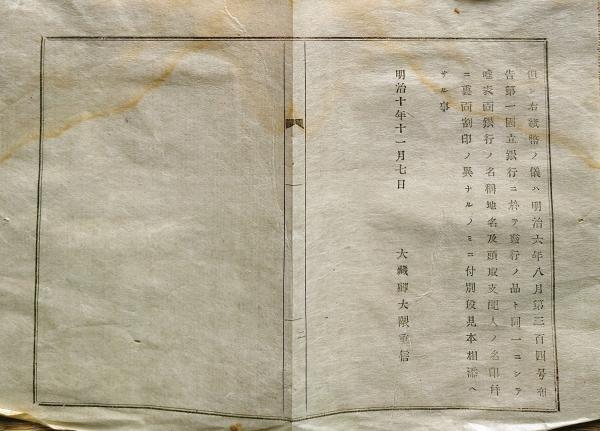 但シ右紙幣ノ儀ハ明治六年八月第三百四号布
告第一國立銀行ニ於テ發行ノ品ト同一ニシテ
唯表面銀行ノ名稱地名及頭取支配人ノ名印幷
ニ裏面割印ノ異ナルノミニ付別段見本相添ヘ
サル事
明治十年十一月七日　大藏卿大隈重信
二